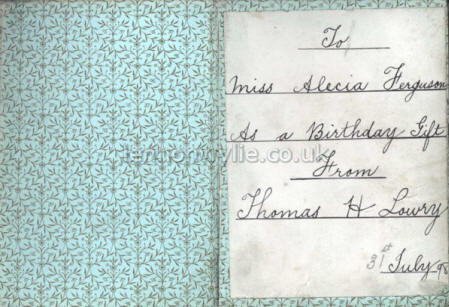 To
Miss Alecia Ferguson
As a Birthday Gift
From
Thomas H Lowry
31st July 98